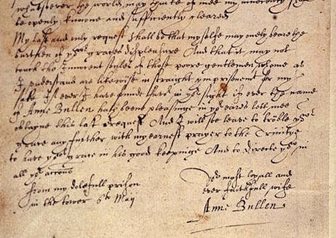 the world may of mee my
openly knowne and sufficiently cleared
My last and only request shall be that my selfe may onely beare the
burthen of yor graces displeasure And that it may not
touch the Innocent soules of those pore gentlemen whome as
I understand are likewise in straight imprisonment for my
sake If ever I have found favor in yor sight If ever the name
of Anne Bullen hath been pleasinge in yor eares lett mee
obtayne this last request And I will soe leave to trouble yor
grace any further with my ernest prayer to the Trinitye
to have yor grace in his good keepinge And to directe you in
all yor actions
From my dolefull prison
in the tower 6th May
Yor most loyall and
ever faithfull wife
Anne Bullen